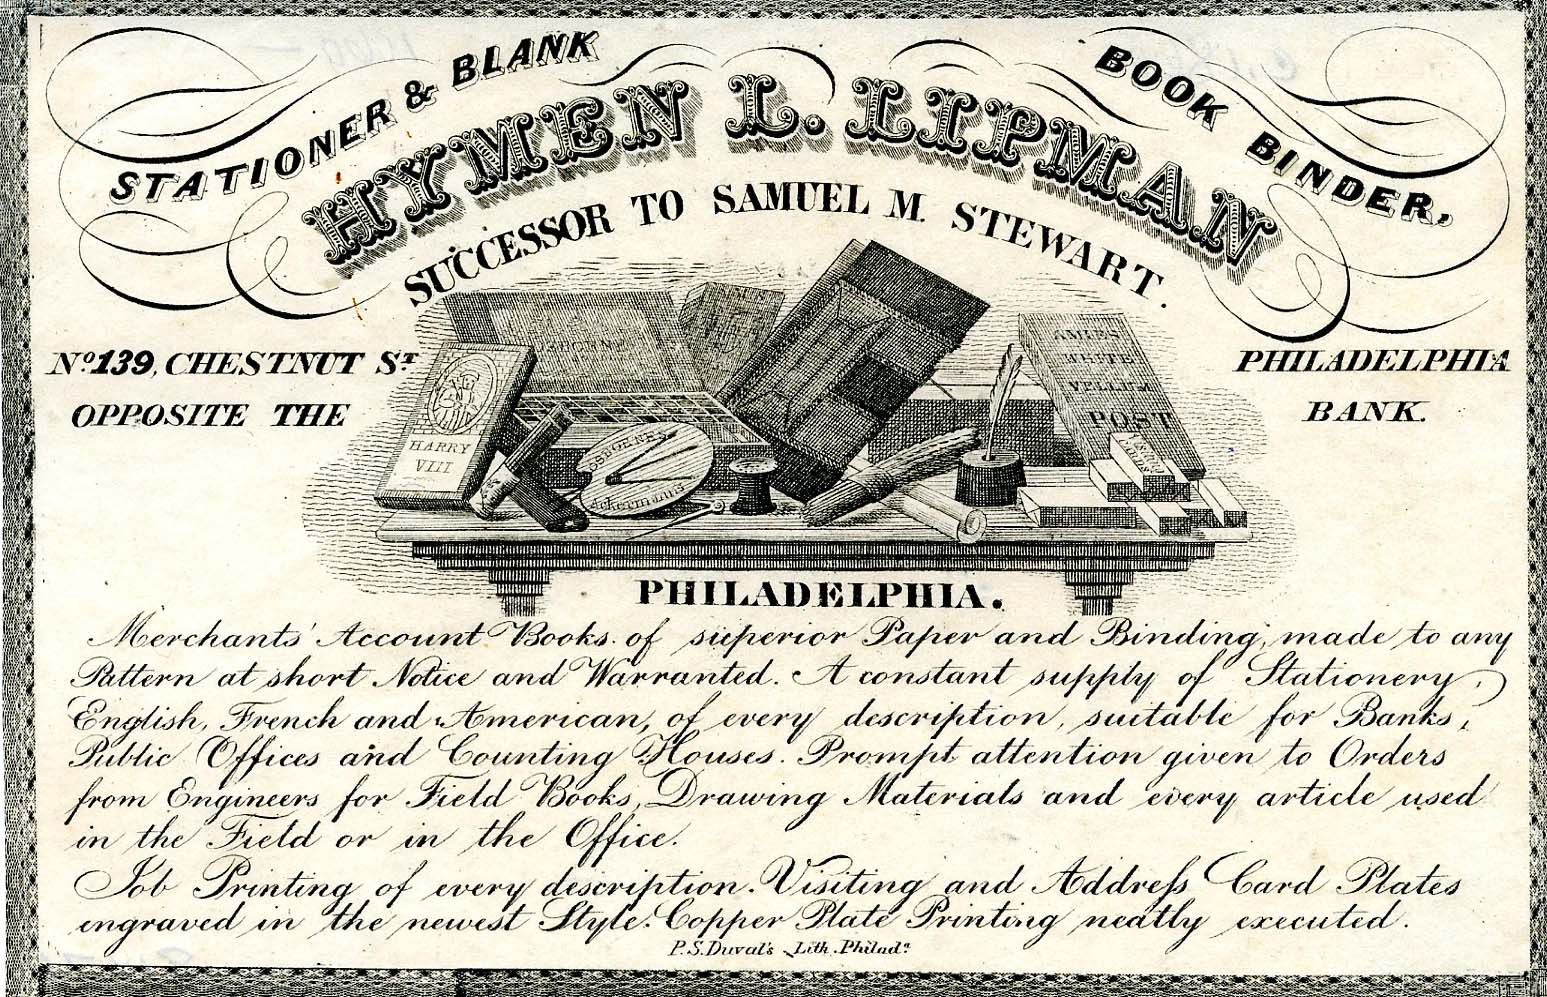 STATIONER & BLANK BOOK BINDER,
HYMEN L. LIPMAN
SUCCESSOR TO SAMUEL M. STEWART.
No. 139, CHESTNUT ST. PHILADELPHIA
OPPOSITE THE BANK.
AMIES
WHITE
VELLUM
POST
HARRY
VIII
OSBORNE'S
Ackermans
PHILADELPHIA.
Merchants' Account Books of superior Paper and Binding, made to any
Pattern at short Notice and Warranted. A constant supply of Stationery,
English, French and American, of every description, suitable for Banks,
Public Offices and Counting Houses. Prompt attention given to Orders
from Engineers for Field Books, Drawing Materials and every article used
in the Field or in the Office.
Job Printing of every description. Visiting and Addreſs Card Plates
engraved in the newest Style. Copper Plate Printing neatly executed.
P.S. Duval's Lith. Philada.